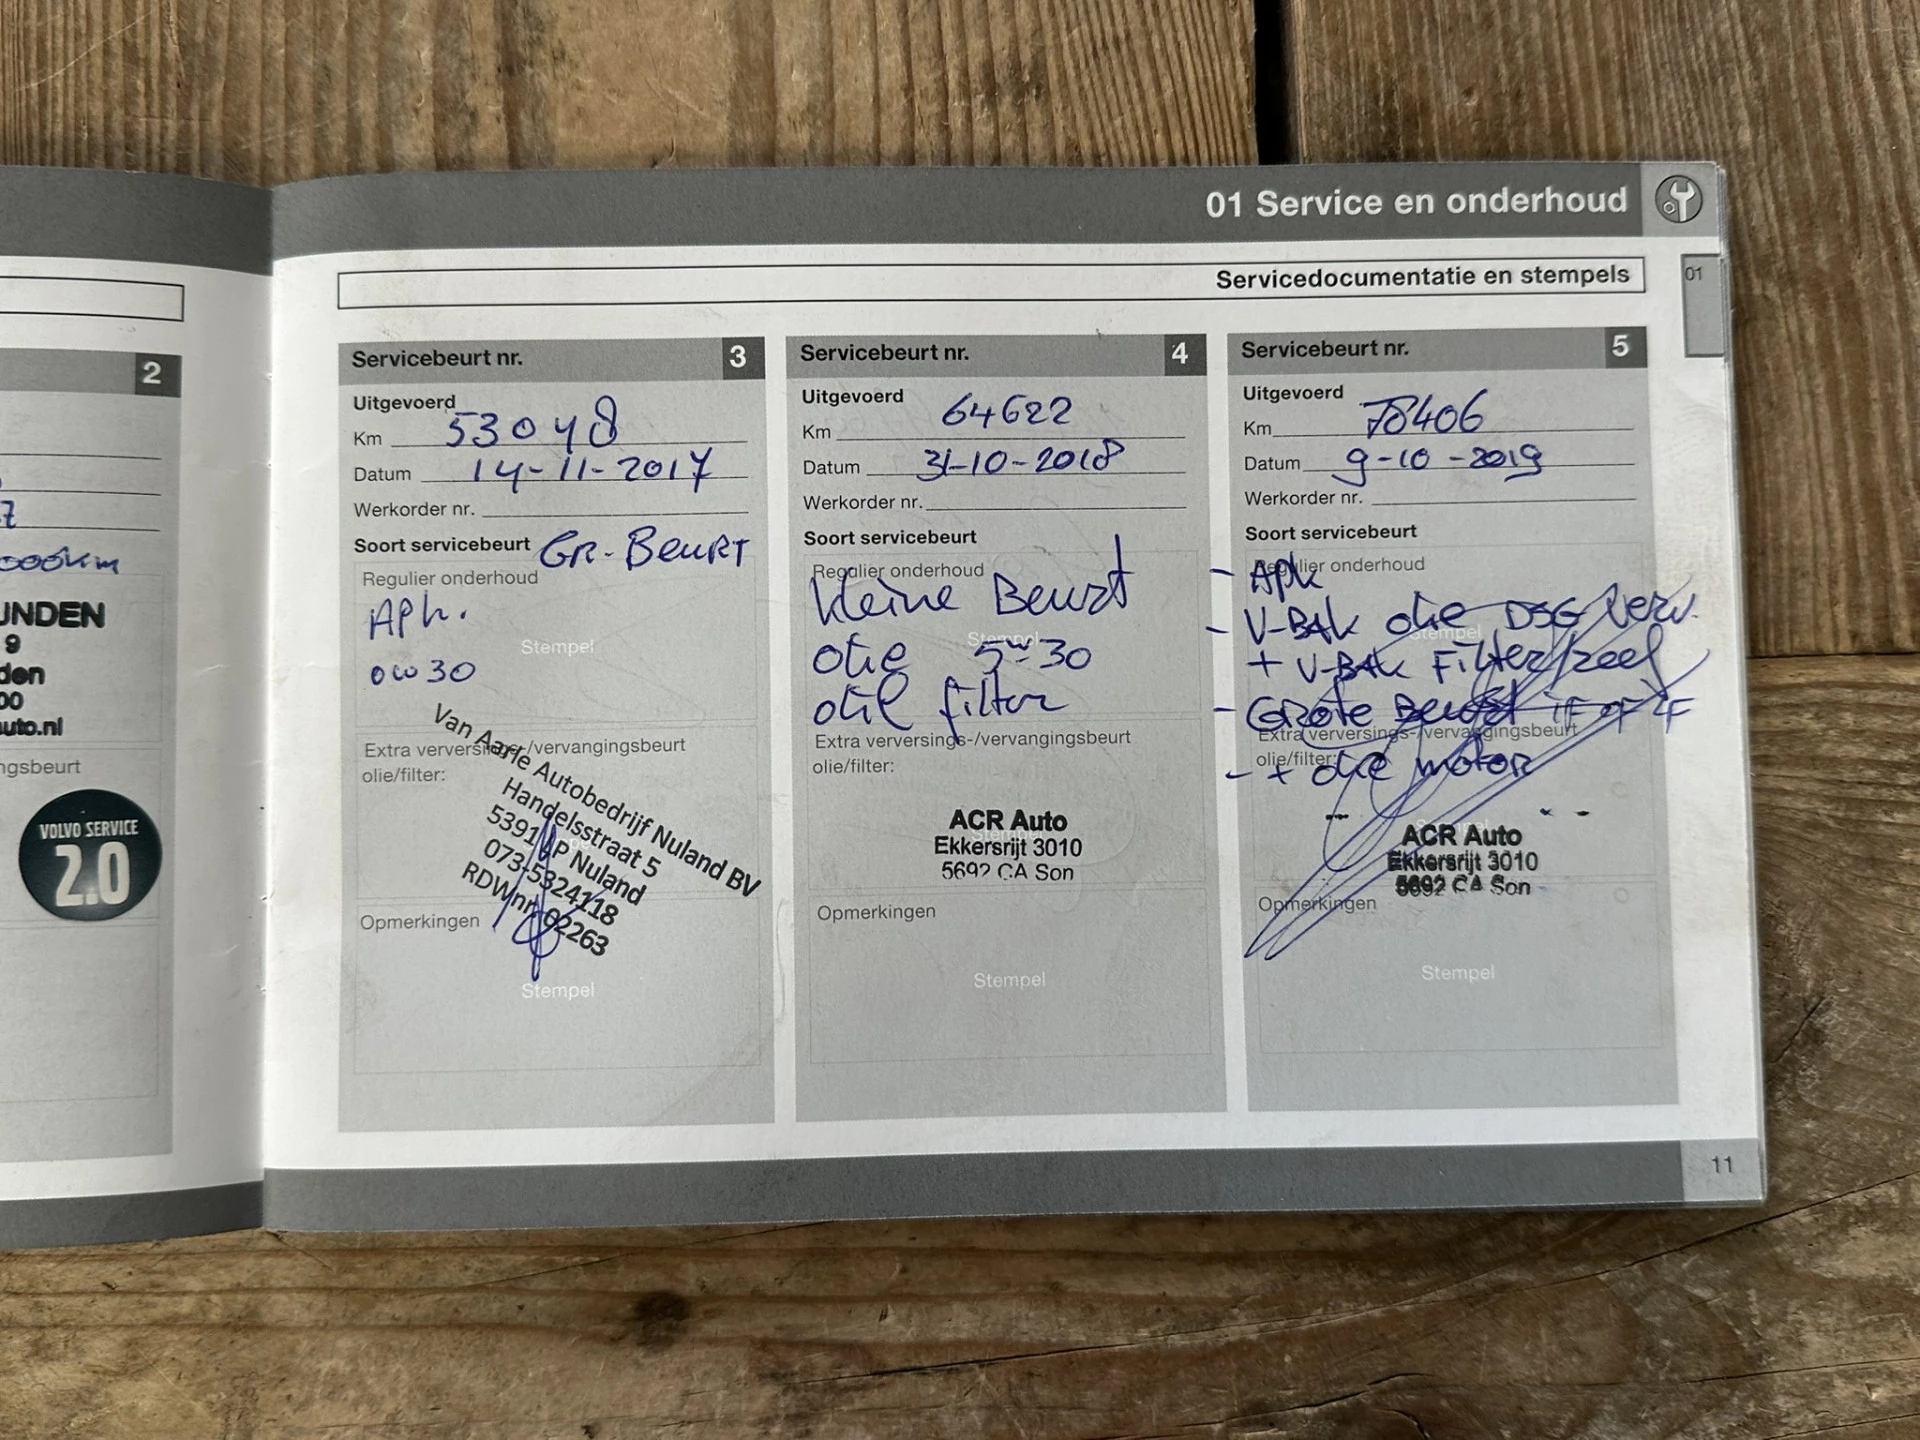 01 Service en onderhoud
Servicedocumentatie en stempels
01
2
7
000km
UNDEN
9
den
00
uto.nl
ngsbeurt
VOLVO SERVICE
2.0
Servicebeurt nr. 3
Uitgevoerd
Km 53048
Datum 14-11-2017
Werkorder nr.
Soort servicebeurt GR-BEURT
Regulier onderhoud
APK.
Stempel
0W30
Extra verversings-/vervangingsbeurt
olie/filter:
Van Aarle Autobedrijf Nuland BV
Handelsstraat 5
5391 AP Nuland
073-5324118
RDWnr. 02263
Opmerkingen
Stempel
Servicebeurt nr. 4
Uitgevoerd
Km 64622
Datum 31-10-2018
Werkorder nr.
Soort servicebeurt
Regulier onderhoud
kleine Beurt
Stempel
olie 5w30
olie filter
Extra verversings-/vervangingsbeurt
olie/filter:
Stempel
ACR Auto
Ekkersrijt 3010
5692 CA Son
Opmerkingen
Stempel
Servicebeurt nr. 5
Uitgevoerd
Km 78406
Datum 9-10-2019
Werkorder nr.
Soort servicebeurt
Regulier onderhoud
- APK
- V-BAK olie DSG Verv.
Stempel
+ V-BAK Filter
- GROTE Beurt
Extra verversings-/vervangingsbeurt
olie/filter:
- + olie motor
Stempel
ACR Auto
Ekkersrijt 3010
5692 CA Son
Opmerkingen
Stempel
11